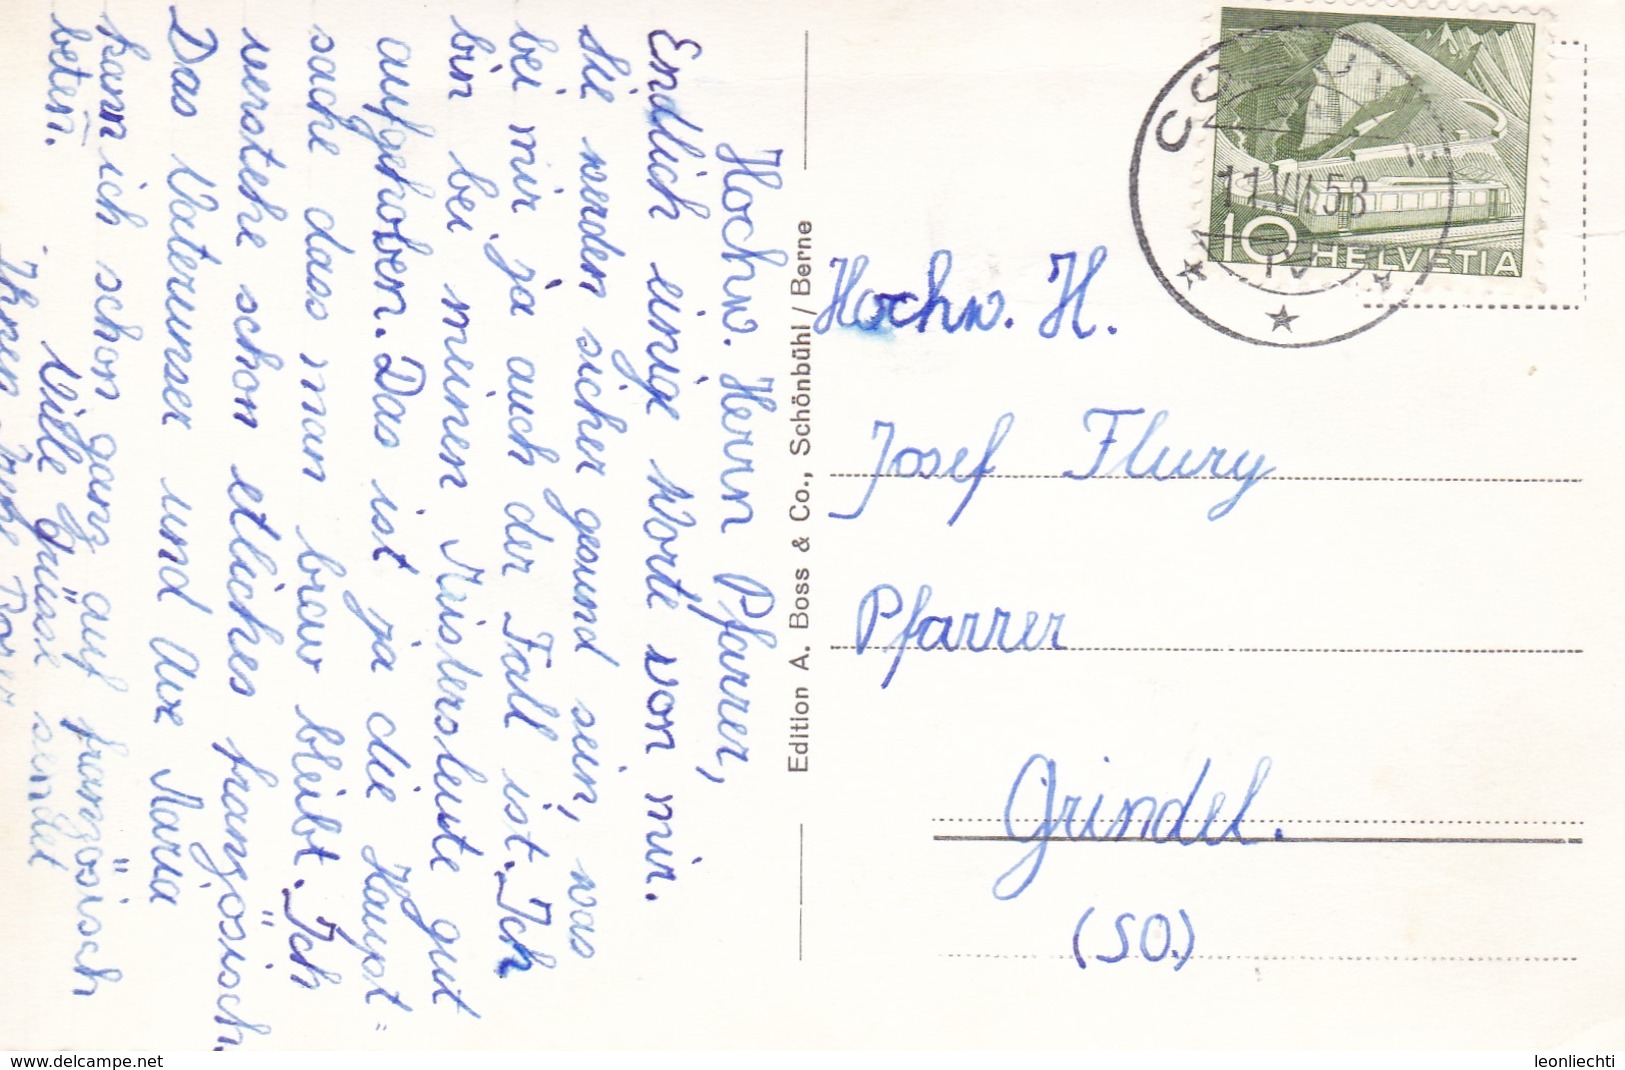 Hochw. Herrn Pfarrer,
Endlich einige Worte von mir.
Sie werden sicher gesund sein, was
bei mir ja auch der Fall ist. Ich
bin bei meinen Meistersleute gut
aufgehoben. Das ist ja die Haupt=
sache dass man brav bleibt. Ich
verstehe schon etliches französisch.
Das Vaterunser und Ave Maria
kann ich schon ganz auf französisch
beten.
Viele Grüsse sendet
Ihnen
Edition A. Boss & Co., Schönbühl / Berne
11.VII.58
10 HELVETIA
Hochw. H.
Josef Flury
Pfarrer
Grindel.
(SO.)
www.delcampe.net
leonliechti